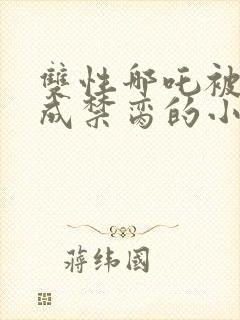 雙性哪吒被
成禁脔的小
蒋纬國